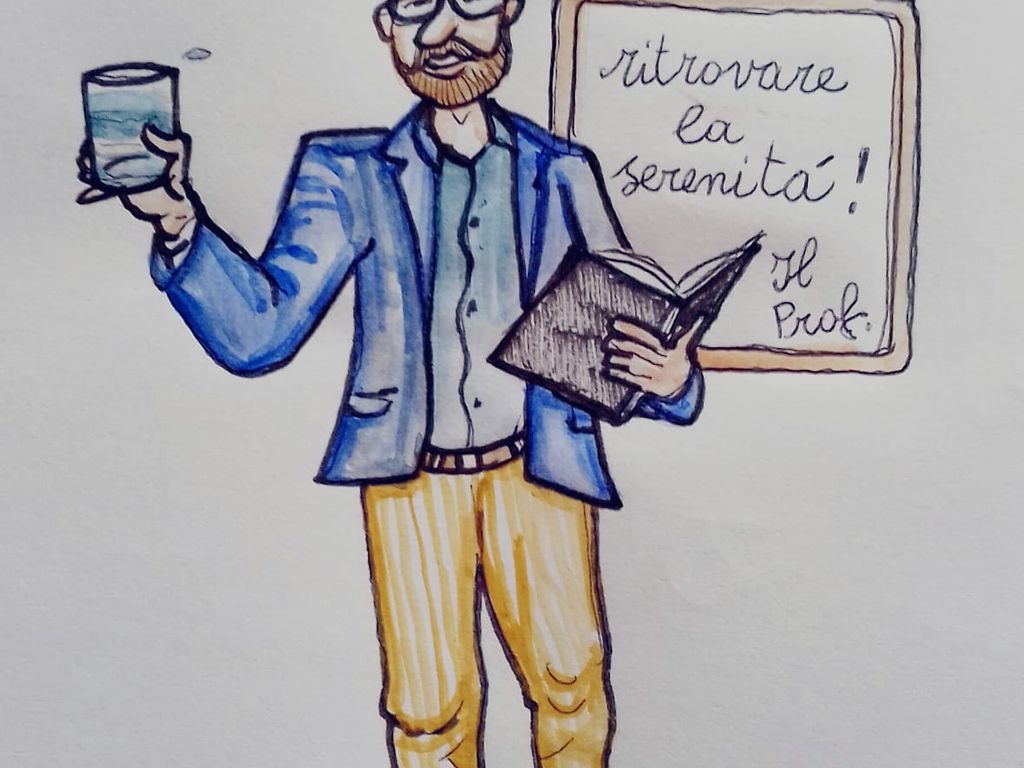 ritrovare
la
serenitá!
Il
Prof.